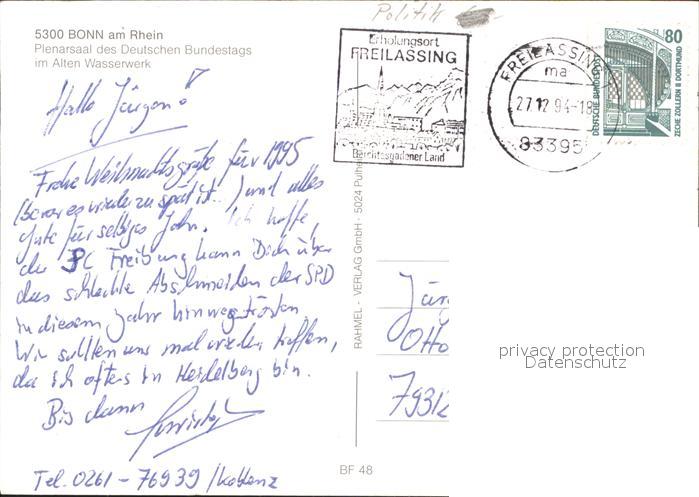 Politik
5300 BONN am Rhein
Plenarsaal des Deutschen Bundestags
im Alten Wasserwerk
Erholungsort
FREILASSING
Berchtesgadener Land
FREILASSING
ma
27.12.94-18
83395
80
DEUTSCHE BUNDESPOST
ZECHE ZOLLERN II DORTMUND
Hallo Jürgen!
Frohe Weihnachtsgrüße für 1995
(bevor es wieder zu spät ist..) und alles
Gute für selbiges Jahr. Ich hoffe,
der SC Freiburg kann Dich über
das schlechte Abschneiden der SPD
in diesem Jahr hinwegtrösten.
Wir sollten uns mal wieder treffen,
da ich öfters in Heidelberg bin.
Bis dann
Tel. 0261-76939/Koblenz
RAHMEL-VERLAG GmbH · 5024 Pulh
Jürg
Otto
79312
privacy protection
Datenschutz
BF 48